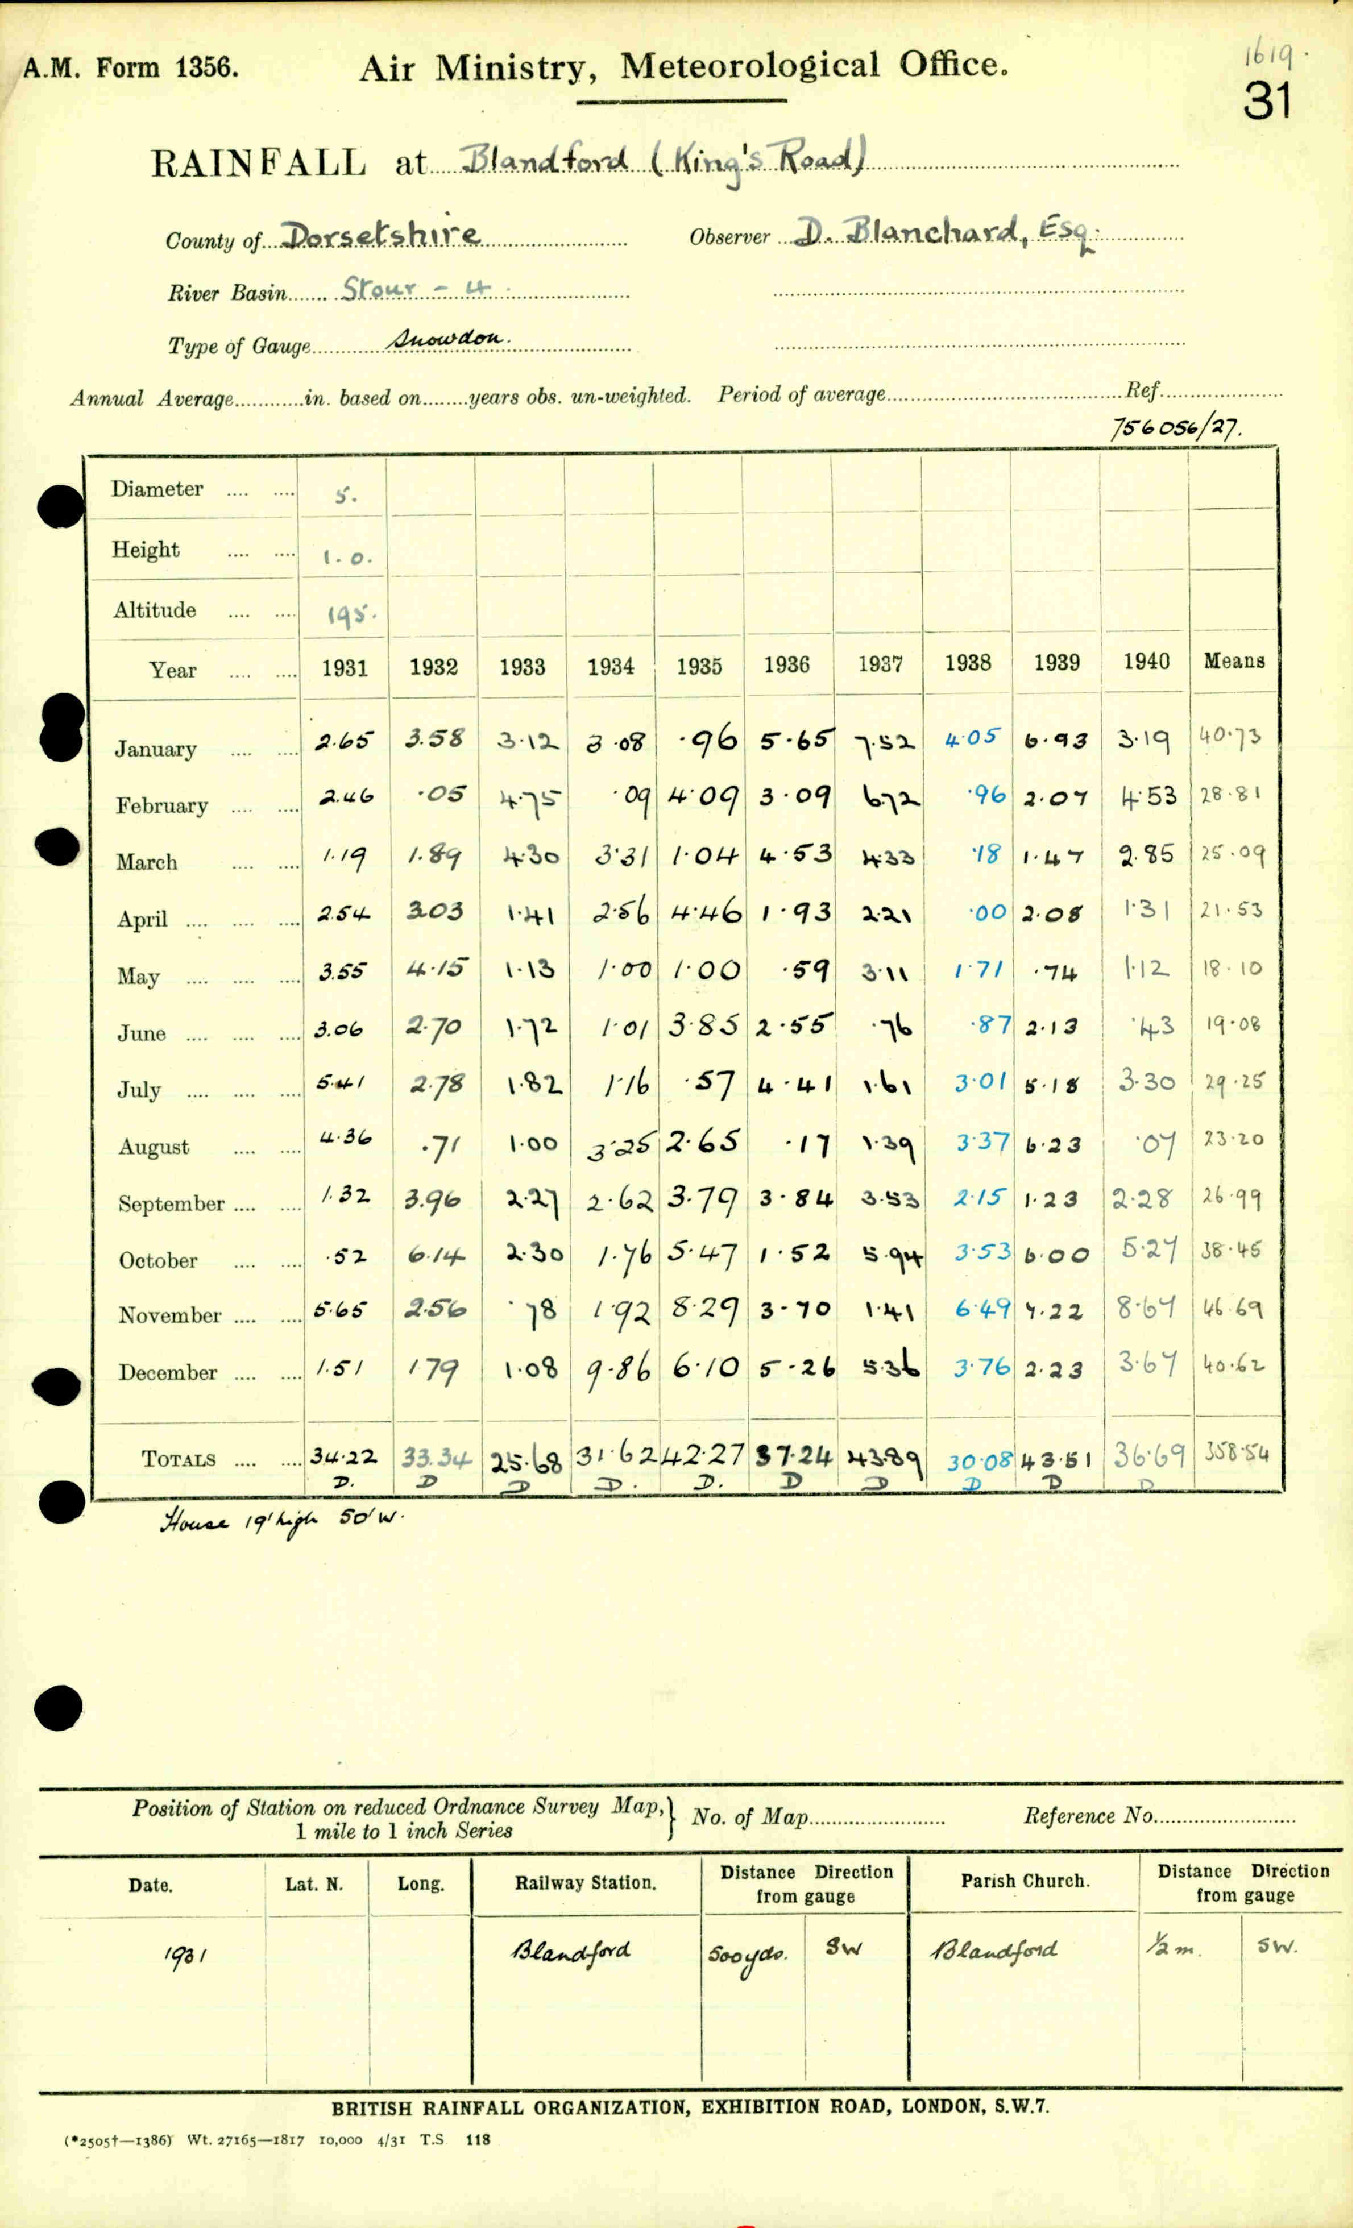 1619.
A.M. Form 1356. Air Ministry, Meteorological Office. 31
RAINFALL at Blandford (King's Road)
County of Dorsetshire Observer D. Blanchard, Esq.
River Basin Stour - 4
Type of Gauge Snowdon.
Annual Average in. based on years obs. un-weighted. Period of average Ref.
756056/27.
Diameter 5.
Height 1.0.
Altitude 195.
Year 1931 1932 1933 1934 1935 1936 1937 1938 1939 1940 Means
January 2.65 3.58 3.12 3.08 .96 5.65 7.52 4.05 6.93 3.19 40.73
February 2.46 .05 4.75 .09 4.09 3.09 6.72 .96 2.07 4.53 28.81
March 1.19 1.89 4.30 3.31 1.04 4.53 4.33 .18 1.47 2.85 25.09
April 2.54 3.03 1.41 2.56 4.46 1.93 2.21 .00 2.08 1.31 21.53
May 3.55 4.15 1.13 1.00 1.00 .59 3.11 1.71 .74 1.12 18.10
June 3.06 2.70 1.72 1.01 3.85 2.55 .76 .87 2.13 .43 19.08
July 5.41 2.78 1.82 1.16 .57 4.41 1.61 3.01 5.18 3.30 29.25
August 4.36 .71 1.00 3.25 2.65 .17 1.39 3.37 6.23 .07 23.20
September 1.32 3.96 2.27 2.62 3.79 3.84 3.53 2.15 1.23 2.28 26.99
October .52 6.14 2.30 1.76 5.47 1.52 5.94 3.53 6.00 5.27 38.45
November 5.65 2.56 .78 1.92 8.29 3.70 1.41 6.49 7.22 8.67 46.69
December 1.51 1.79 1.08 9.86 6.10 5.26 5.36 3.76 2.23 3.67 40.62
TOTALS 34.22 33.34 25.68 31.62 42.27 37.24 43.89 30.08 43.51 36.69 358.54
D. D D D. D. D D D D D
House 19' high 50' W.
Position of Station on reduced Ordnance Survey Map, } No. of Map Reference No.
1 mile to 1 inch Series
Date. Lat. N. Long. Railway Station. Distance Direction from gauge Parish Church. Distance Direction from gauge
1931 Blandford 500 yds. SW Blandford 1/2 m. SW.
BRITISH RAINFALL ORGANIZATION, EXHIBITION ROAD, LONDON, S.W.7.
(*2505†—1386) Wt. 27165—1817 10,000 4/31 T.S 118